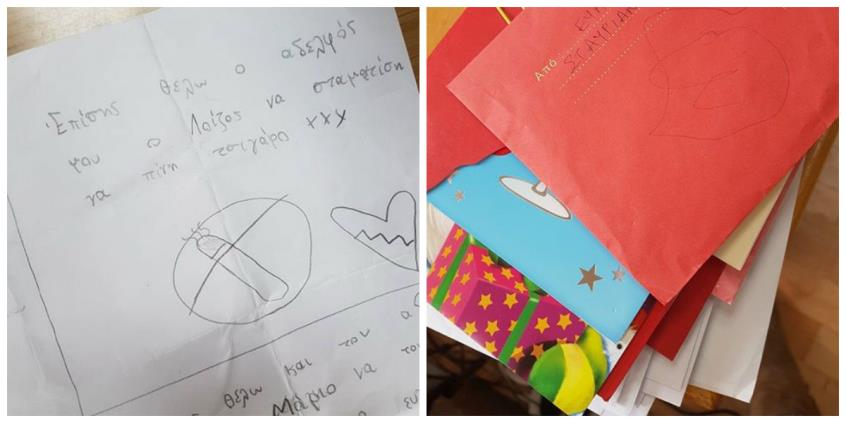 Επίσης θέλω ο αδελφός
μου ο Λοΐζος να σταματίση
να πίνη τσιγάρο xxx
θέλω και τον α
Μάριο να το
Από
ΣΤΑΥΡΙΑΝ